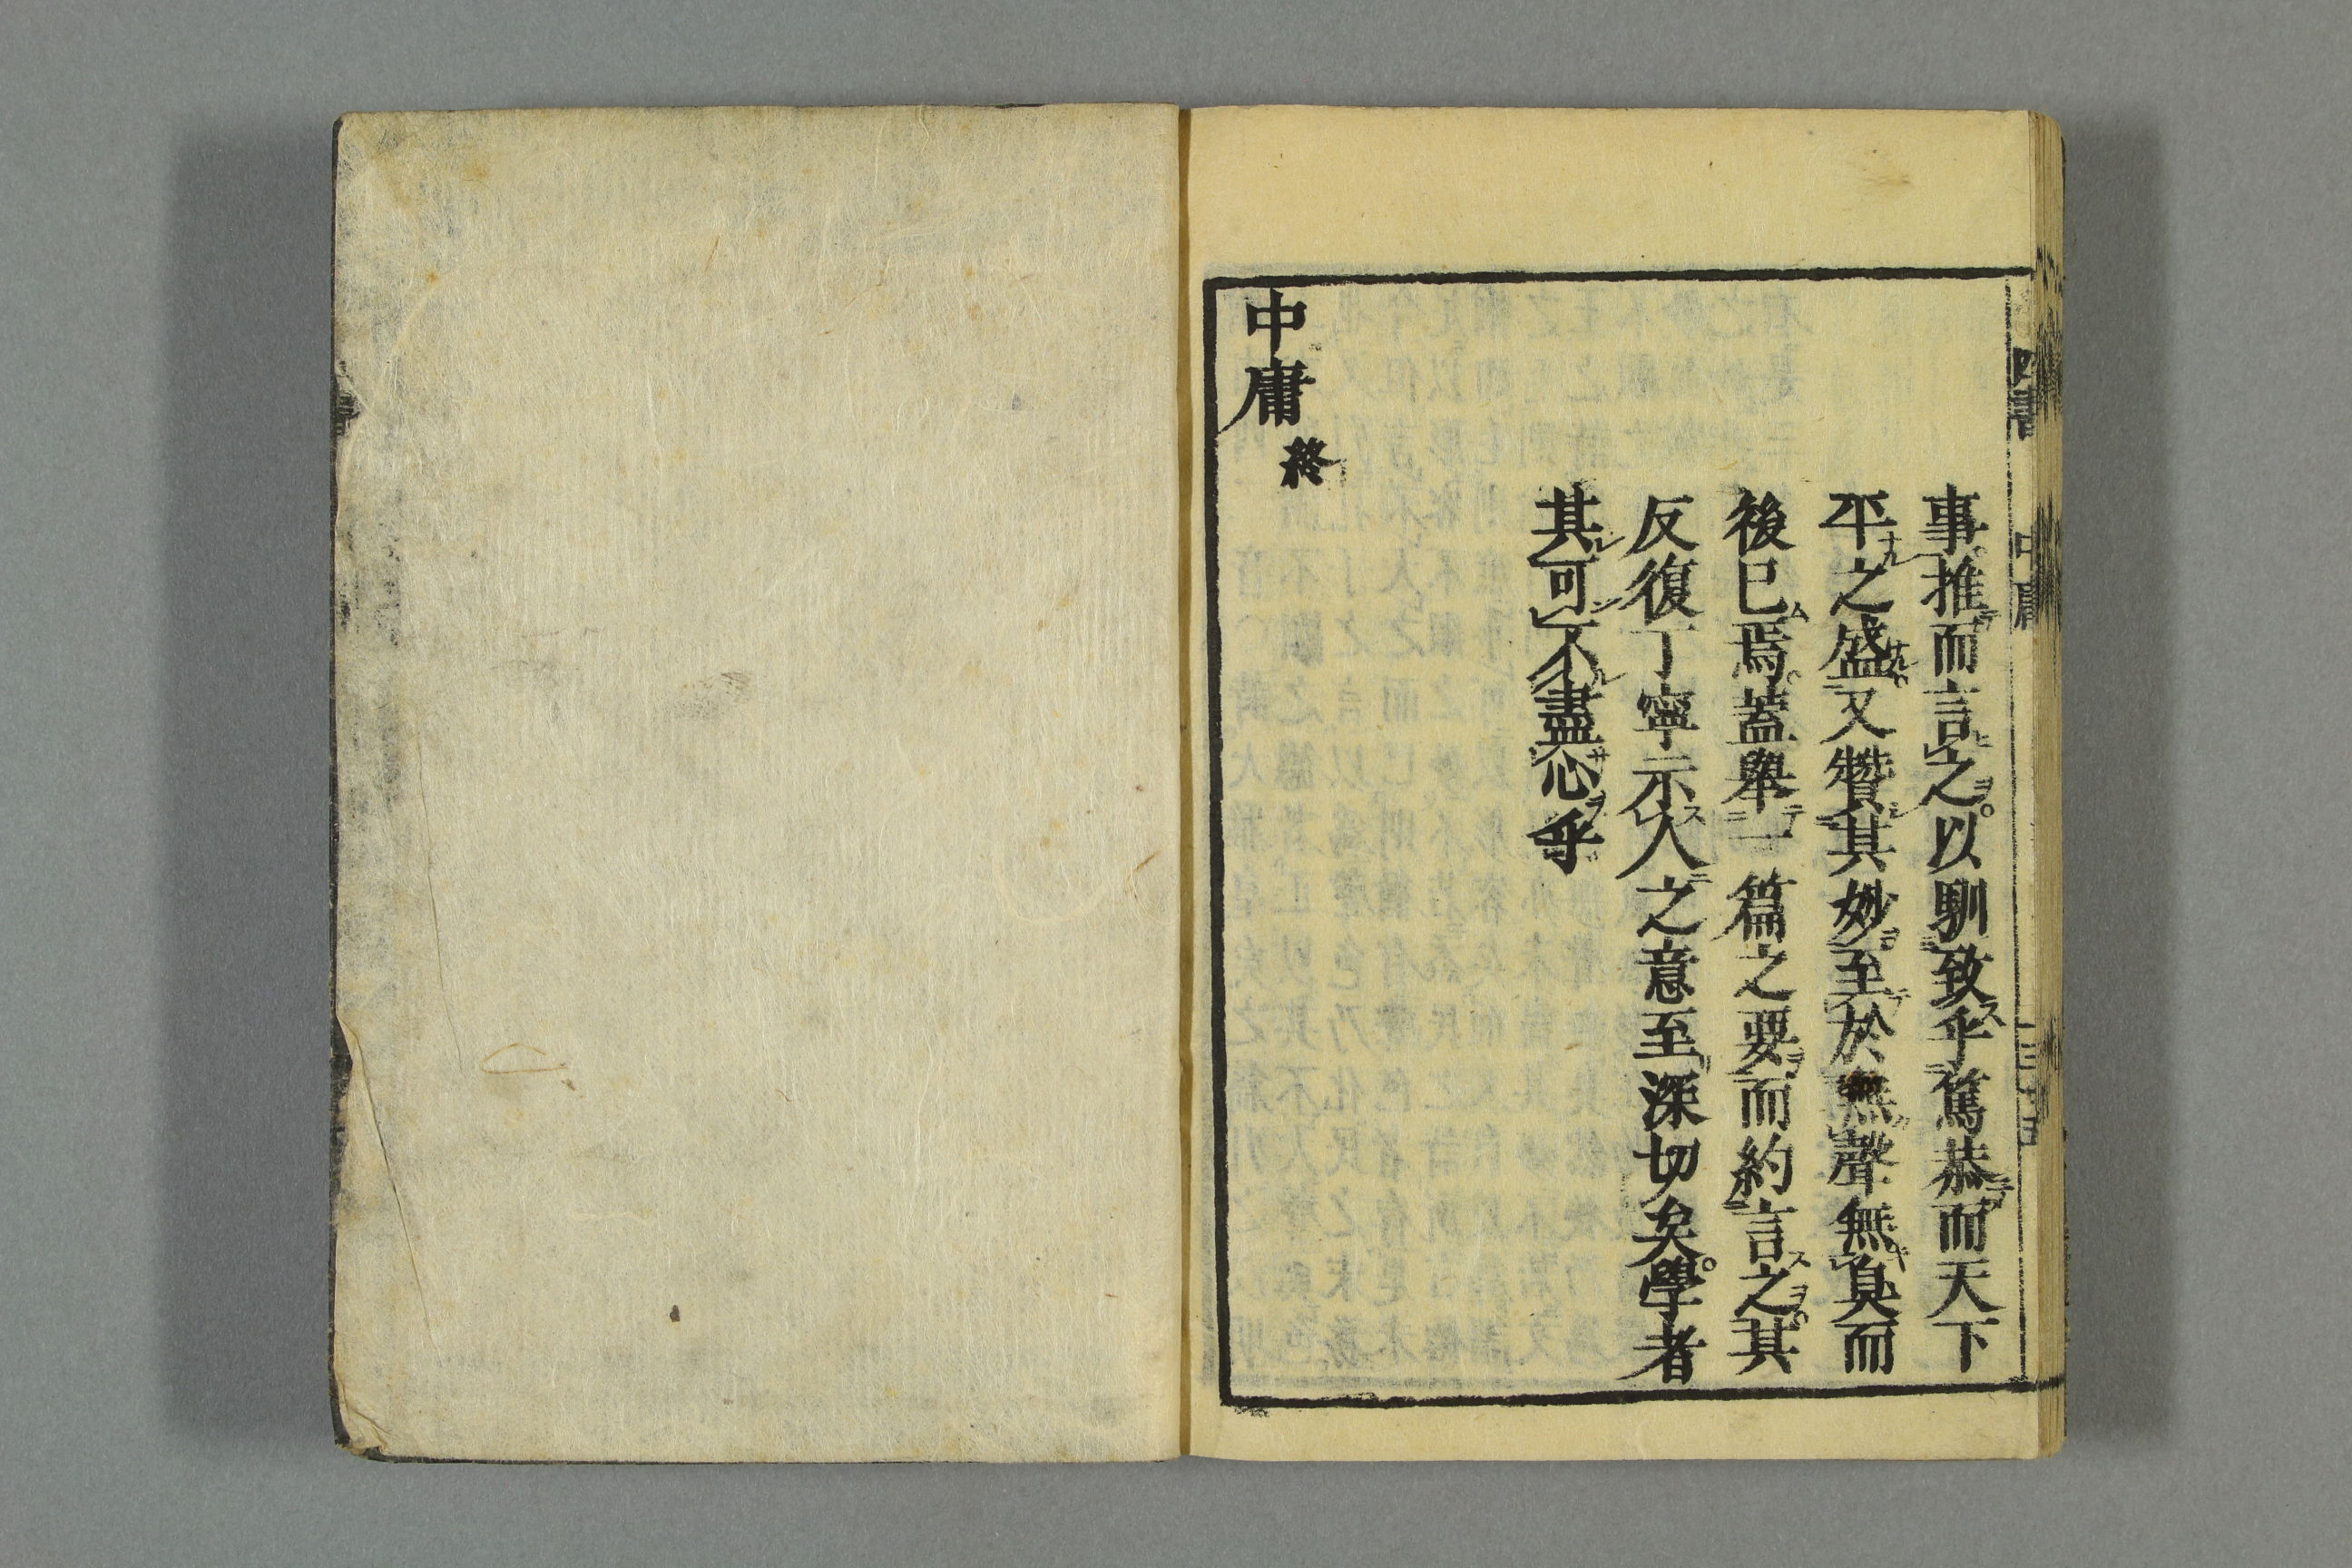 事推而言之。以馴致乎篤恭而天下
平之盛。又贊其妙至於無聲無臭而
後已焉。蓋舉一篇之要而約言之。其
反復丁寧示人之意至深切矣。學者
其可不盡心乎
中庸終